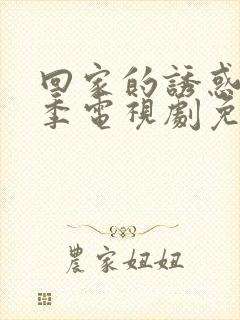 回家的誘惑
季電視劇免
農家妞妞